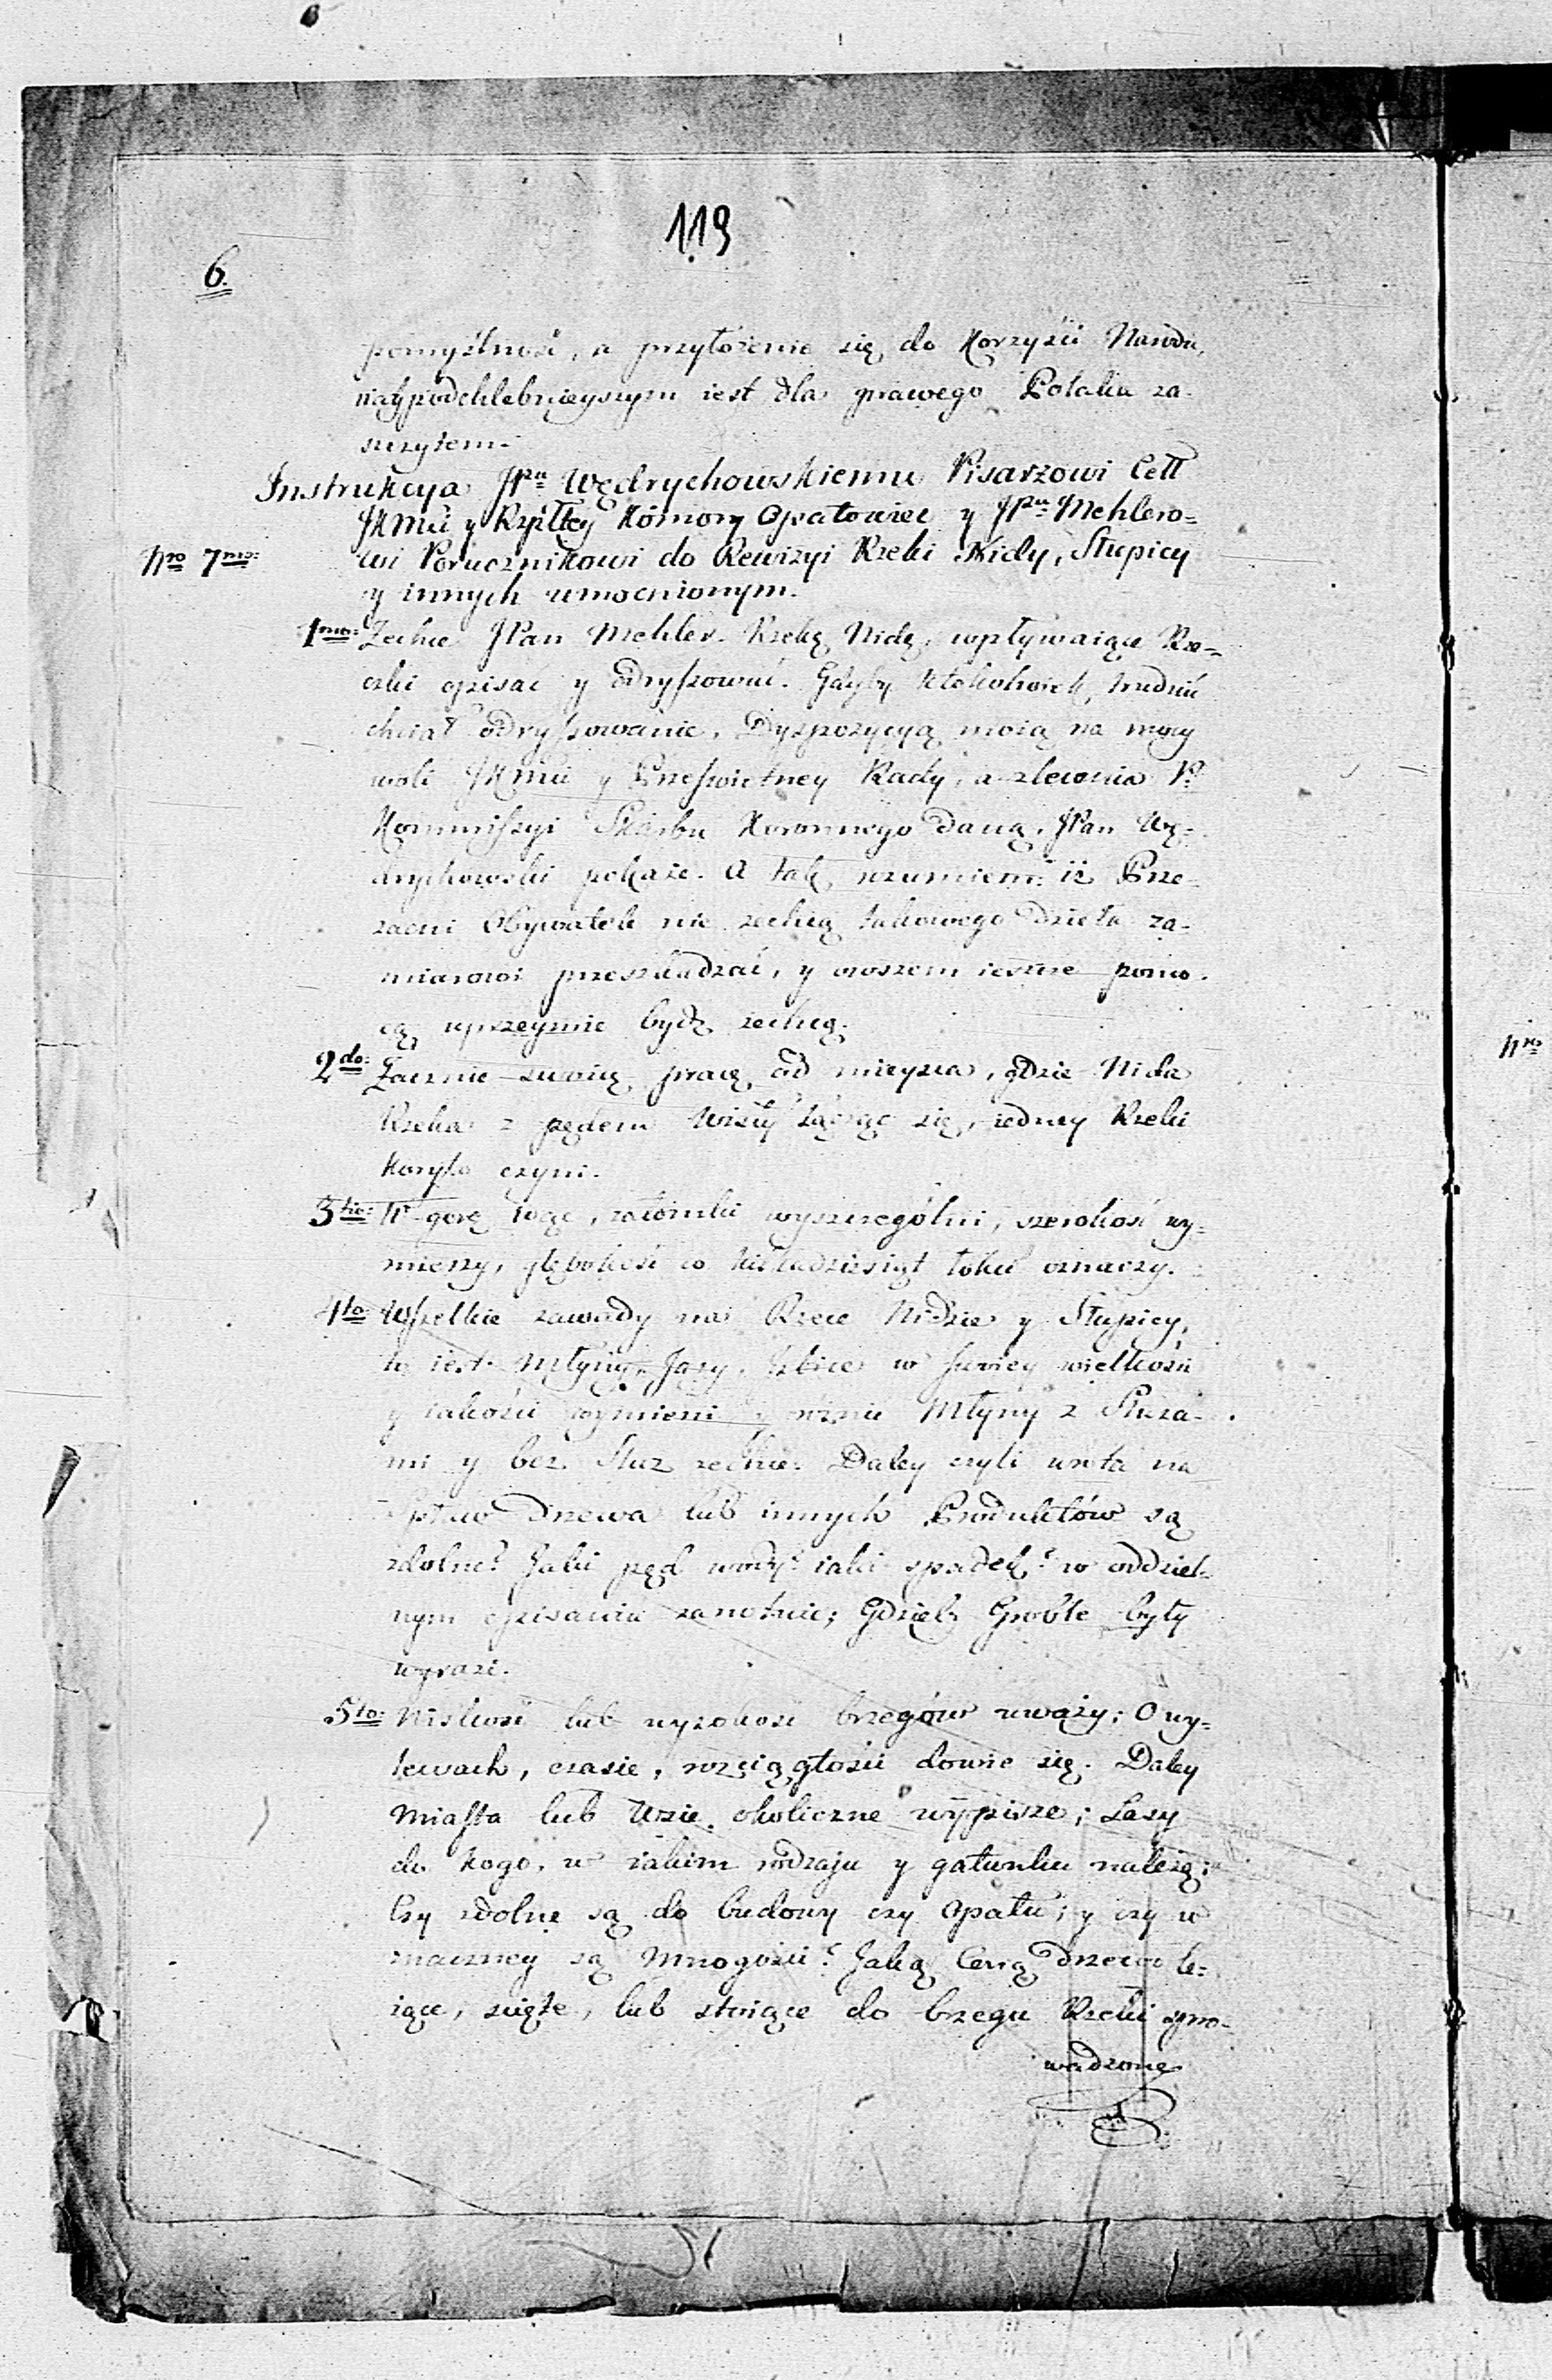 119
6.
pomyślność, a przyłożenie się do Korzyści Narodu,
naypodchlebnieyszym iest dla prawego Polaka za-
szczytem.
Instrukcya JPu Wędrychowskiemu Pisarzowi Cell
JKMci y Rzpltey Komory Opatowiec y JPu Mehlero=
Nro 7mo: wi Porucznikowi do Rewizyi Rzeki Nidy, Słupicy
y innych umocnionym.
1mo: Zechce JPan Mehler Rzekę Nidę, wpływaiące Rze=
czki opisać y odryſsować. Gdyby ktokolwiek trudnić
chciał odryſsowanie, Dyspozycyą moią na mocy
woli JKMci y Prześwietney Rady, a zlecenia P.
Kommiſsyi Skarbu Koronnego daną, JPan Wę=
drychowski pokaże. A tak rozumiem iż Prze=
zacni Obywatele nie zechcą takowego dzieła za-
miarowi przeszkadzać, y owszem ieszcze pomo-
cą uprzeymie bydź zechcą.
2do: Zacznie swoią pracę od mieysca, gdzie Nida
Rzeka z pędem Wisły łącząc się, iedney Rzeki
Koryto czyni.
3tio: W gorę idąc, załomki wyszczególni, szerokość wy=
mierzy, głębokość co kilkadziesiąt łokci oznaczy.
4to: Wſzelkie zawady na Rzece Nidzie y Słupicy,
to iest Młyny, Jazy, Izbice w swoiey wielkości
y iakości wymieni y różnić Młyny z Śluza-
mi y bez Śluz zechce. Daley czyli wrota na
spław Drzewa lub innych Produktów są
zdolne? Jaki pęd wody? iaki spadek? w oddziel-
nym opisaniu zanotuie; Gdzieby Groble były
wyrazi.
5to: Niskość lub wysokość brzegów uważy; O wy=
lewach, czasie, rozciągłości dowie się. Daley
Miaſta lub Wsie okoliczne wypisze; Lasy
do kogo, w iakim rodzaju y gatunku należą;
Czy zdolne są do budowy czy opału; y czy w
znaczney są Mnogości? Jaką Ceną drzewo le=
żące, ścięte, lub stoiące do brzegu Rzeki spro-
wadzone
Nro